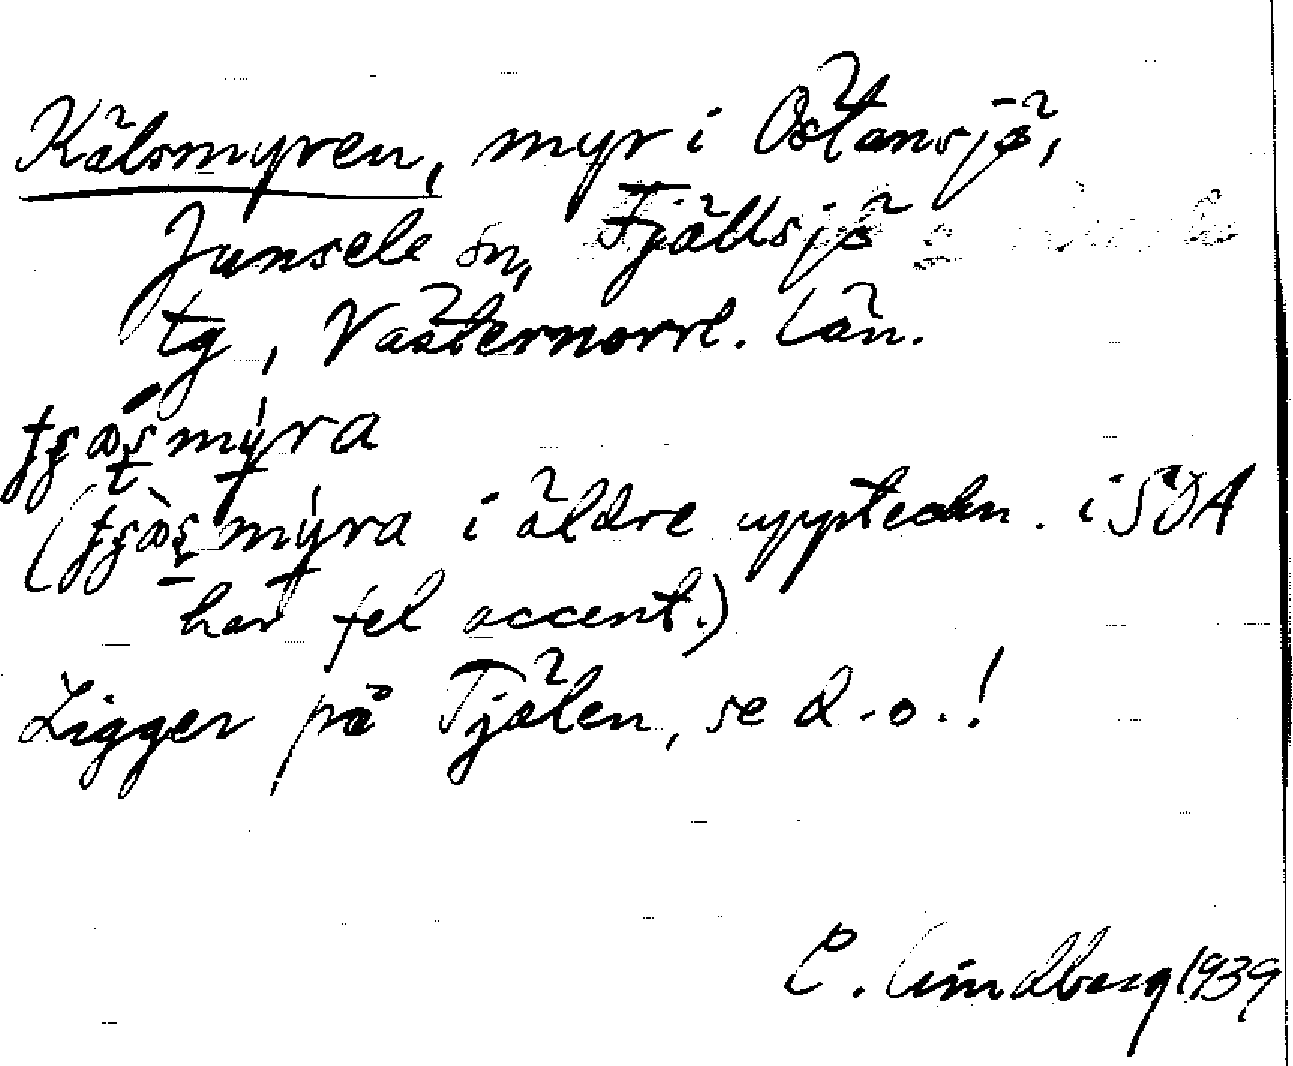 Kälsmyren, myr i Östansjö,
Junsele sn, Fjällsjö
tg, Västernorrl. län.
i äldre uppteckn. i SOA
har fel accent.)
Ligger på Tjälen, se d.o.!
C. Lindberg 1939